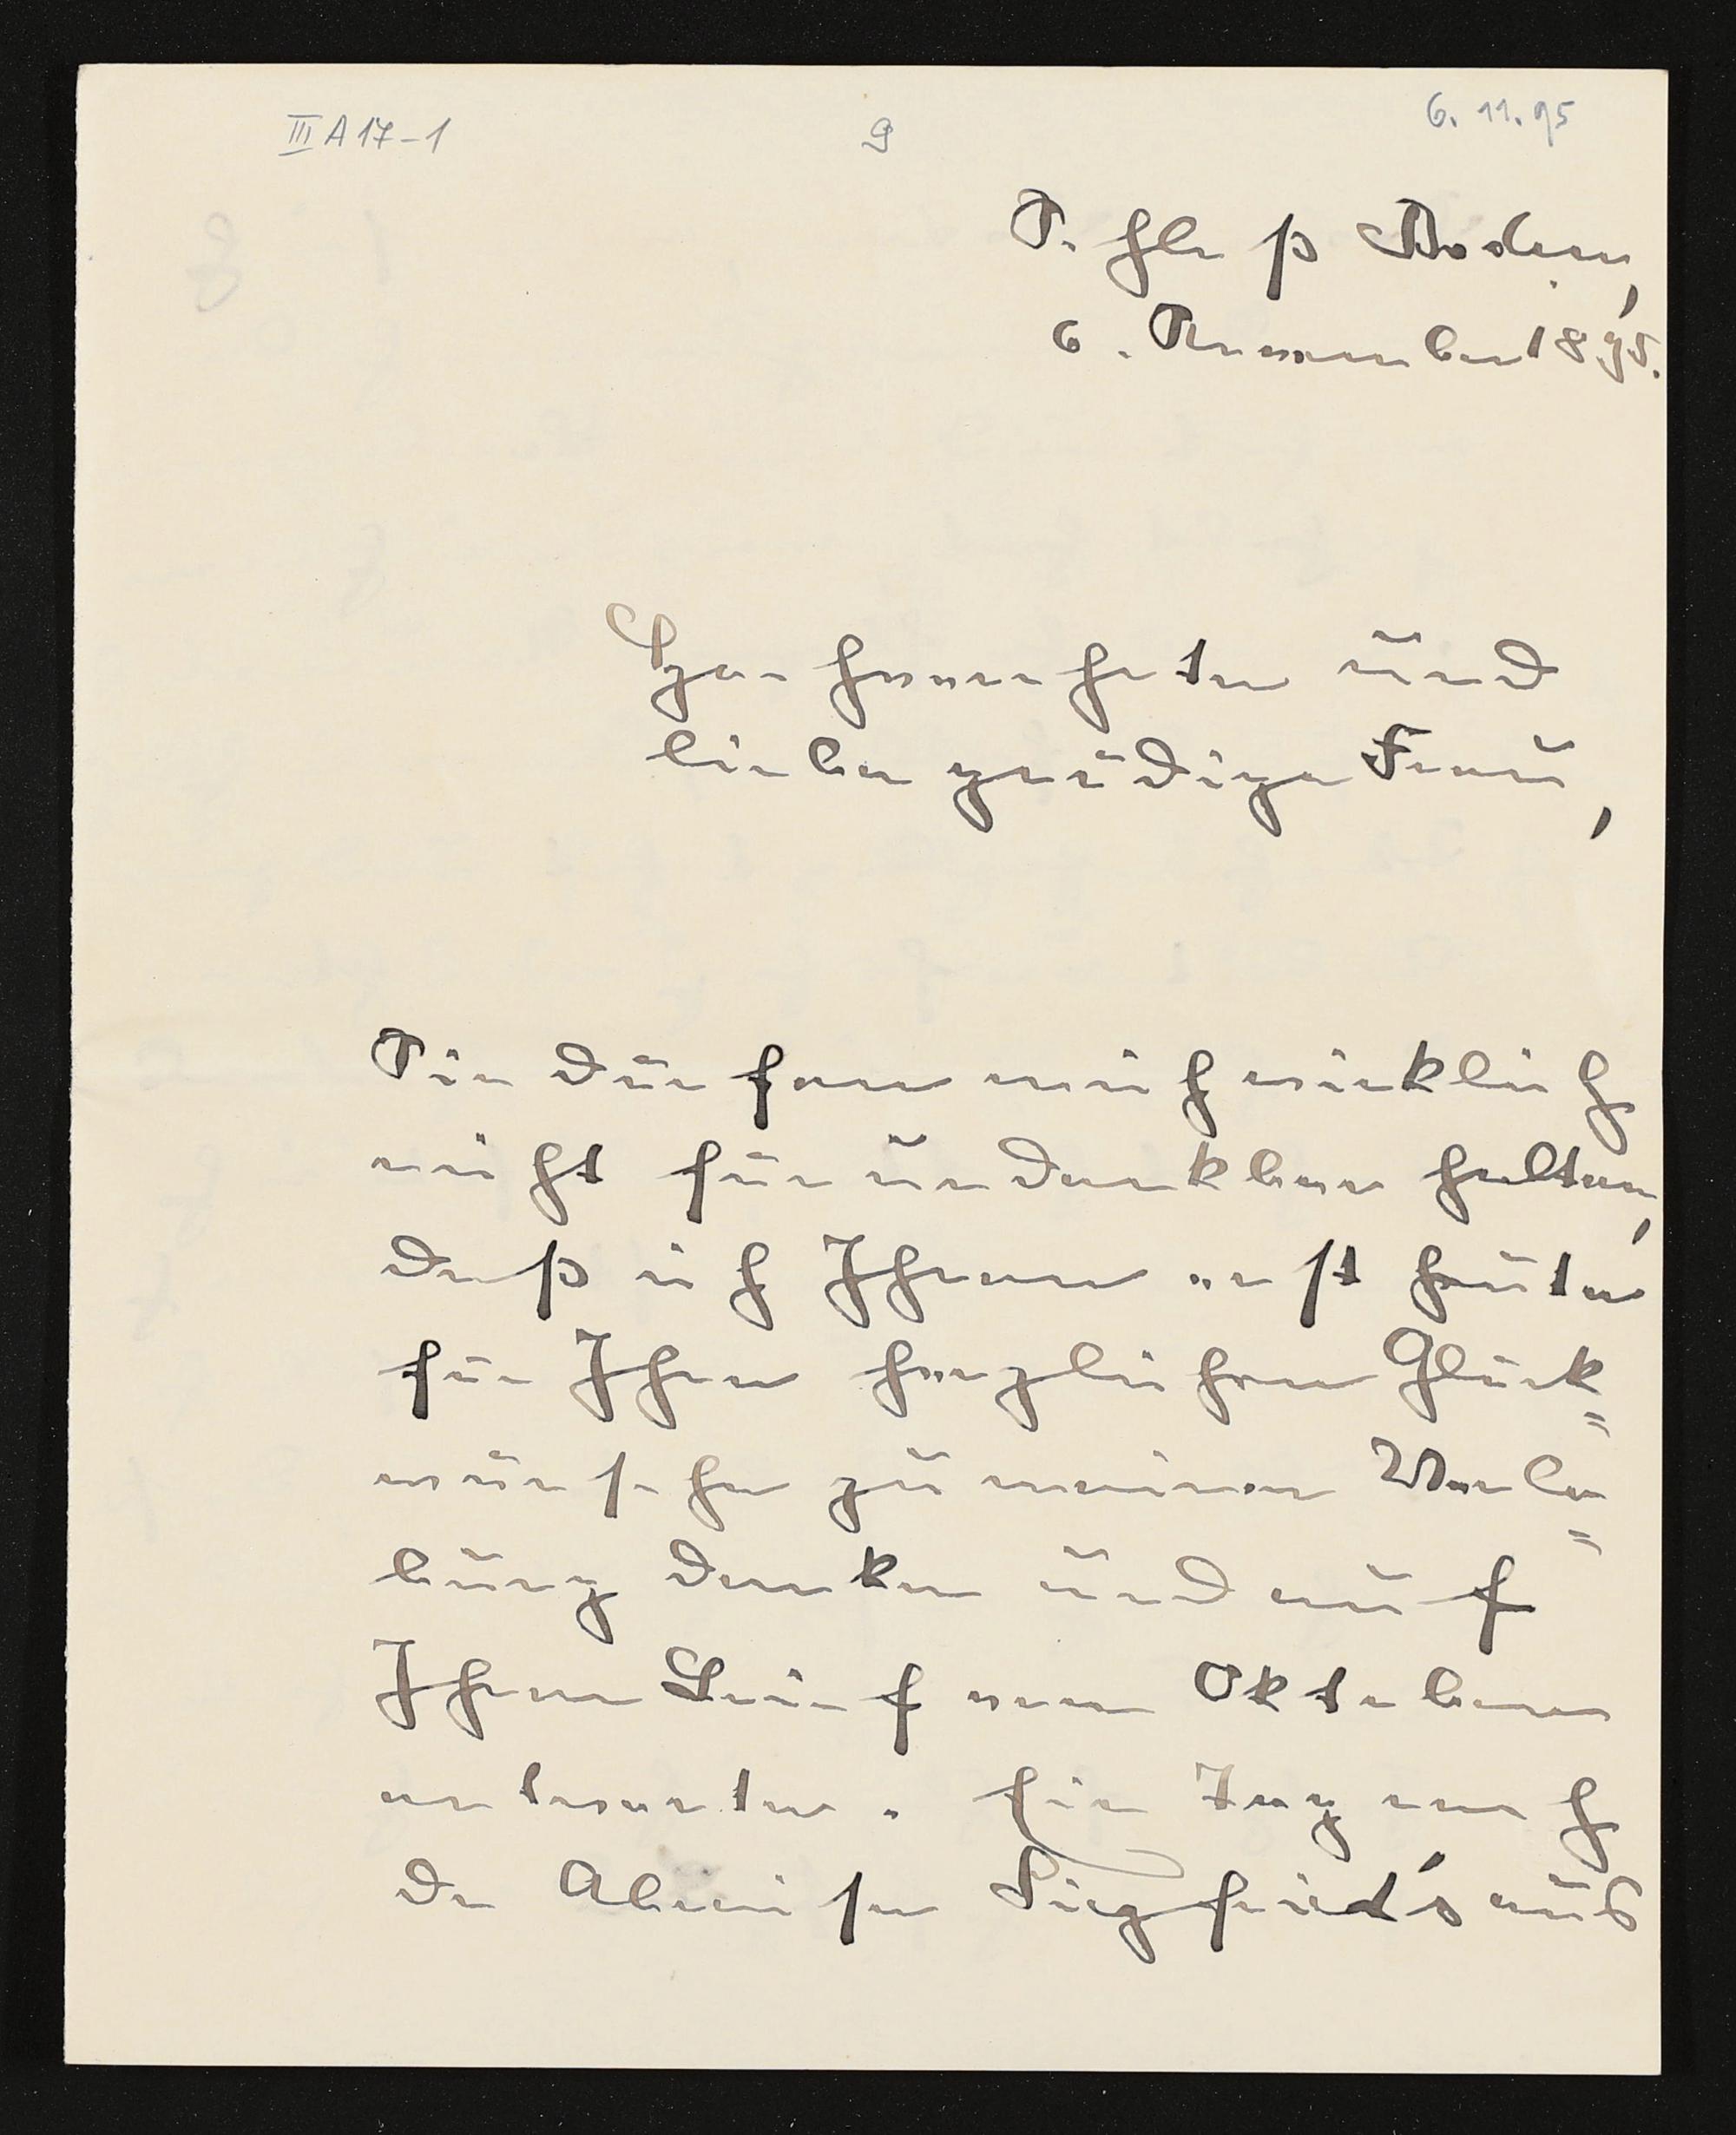 III A 17-1
9
6. 11. 95
Schloß Baden,
6. November 1895.
Hochverehrte und
liebe gnädige Frau,
Sie dürfen mich wirklich
nicht für undankbar halten,
daß ich Ihnen erst heute
für Ihre herzlichen Glück=
wünsche zu meiner Verlo=
bung danke und auf
Ihren Brief vom Oktober
antworte. Ein Tag nach
der Abreise Siegfried's aus